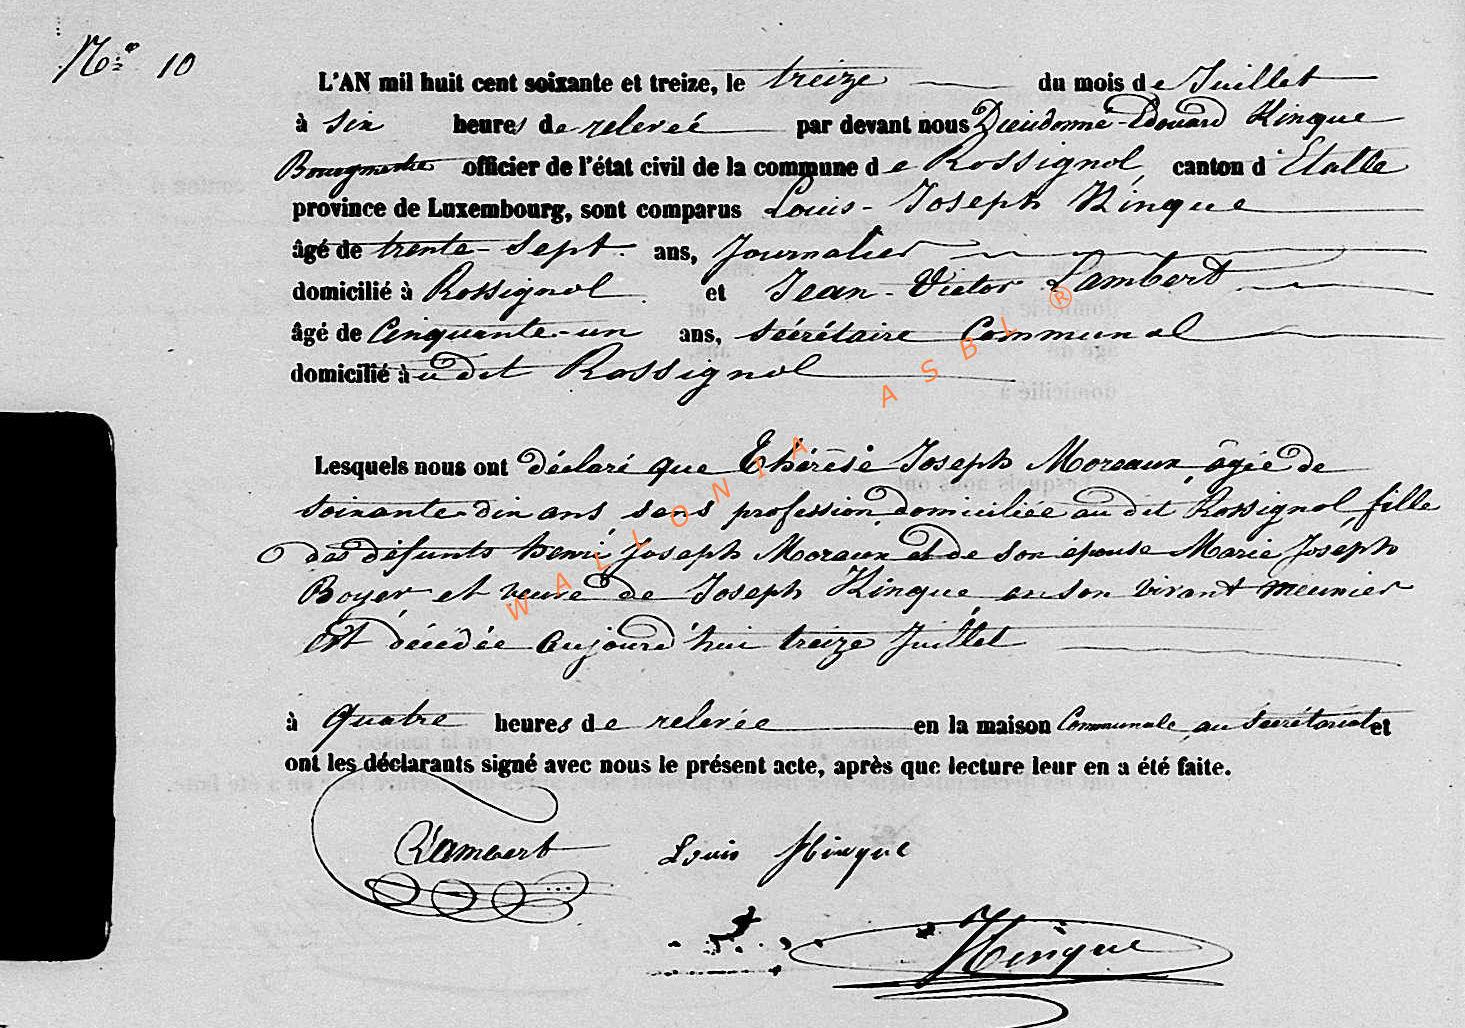 N.° 10
L'AN mil huit cent soixante et treize, le treize du mois de Juillet
à six heures de relevée par devant nous Dieudonné-Edouard Hinque
Bourgmestre officier de l'état civil de la commune de Rossignol, canton d'Etalle
province de Luxembourg, sont comparus Louis-Joseph Hinque
âgé de trente-sept ans, Journalier
domicilié à Rossignol et Jean-Victor Lambert
âgé de Cinquante-un ans, sécrétaire Communal
domicilié à udit Rossignol
Lesquels nous ont déclaré que Thérèse Joseph Moreaux, âgée de
soixante-dix ans, sans profession, domiciliée au dit Rossignol, fille
des défunts henri Joseph Moreaux et de son épouse Marie Joseph
Boyer et veuve de Joseph Hinque, en son vivant meunier
est décédée aujourd'hui treize Juillet
à quatre heures de relevée en la maison Communale, au Secrétariat et
ont les déclarants signé avec nous le présent acte, après que lecture leur en a été faite.
Lambert Louis Hinque
Hinque
WALLONIA ASBL ®